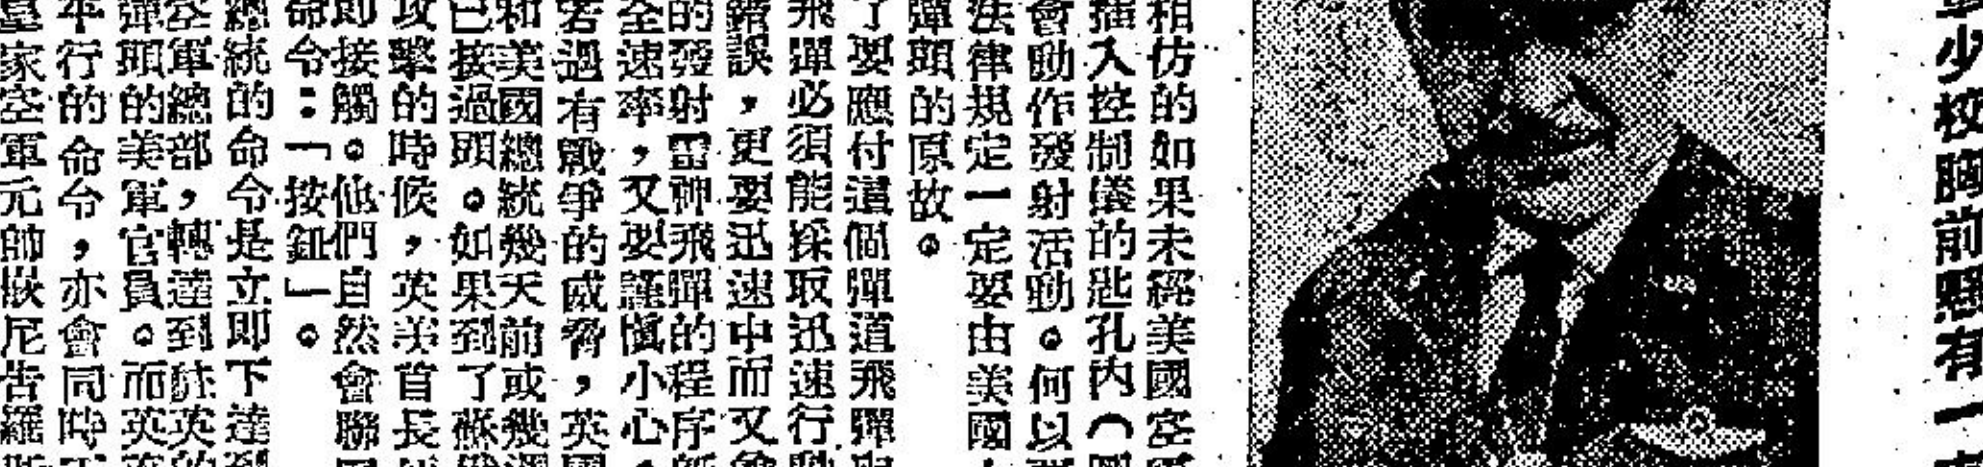 少校胸前懸有一
相仿的如果未經美國空軍
插入控制儀的匙孔內（
會動作發射活動。何以要
法律規定一定要由美國
彈頭的原故。
了要應付這個彈道飛彈
飛彈必須能採取迅速行動
錯誤，更要迅速中而又
的發射雷神飛彈的程序
全速率，又要謹慎小心。
若過有戰爭的威脅，英國
和美國總統幾天前或幾週
已接過頭。如果到了蘇俄
攻擊的時候，英美首長
即接觸。他們自然會聯
命令：「按鈕」。
總統的命令是立即下達到
空軍總部，轉達到駐英的
彈頭的美軍官員。而英
平行的命令，亦會同時下
皇家空軍元帥嵌尼吉羅斯